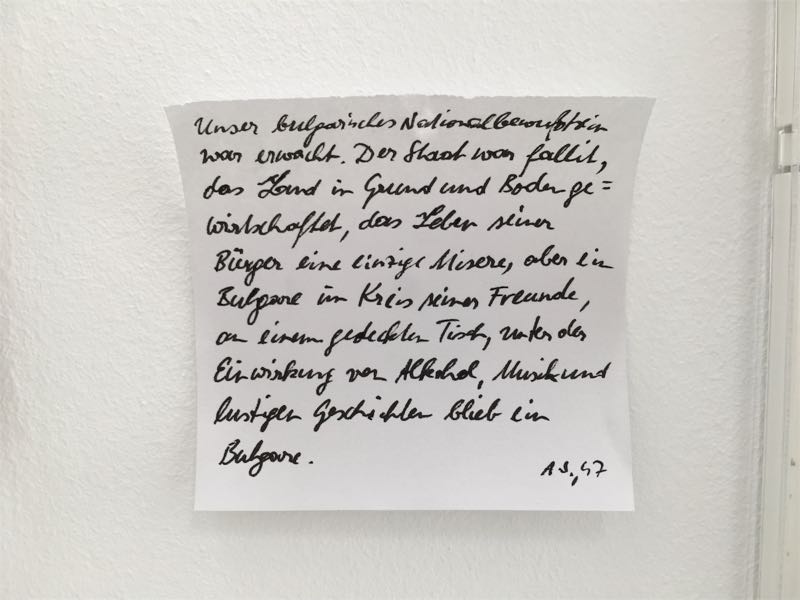 Unser bulgarisches Nationalbewußtsein
war erwacht. Der Staat war fallit,
das Land in Grund und Boden ge=
wirtschaftet, das Leben seiner
Bürger eine einzige Misere, aber ein
Bulgare im Kreis seiner Freunde,
an einem gedeckten Tisch, unter der
Einwirkung von Alkohol, Musik und
lustigen Geschichten blieb ein
Bulgare.
A S., 47